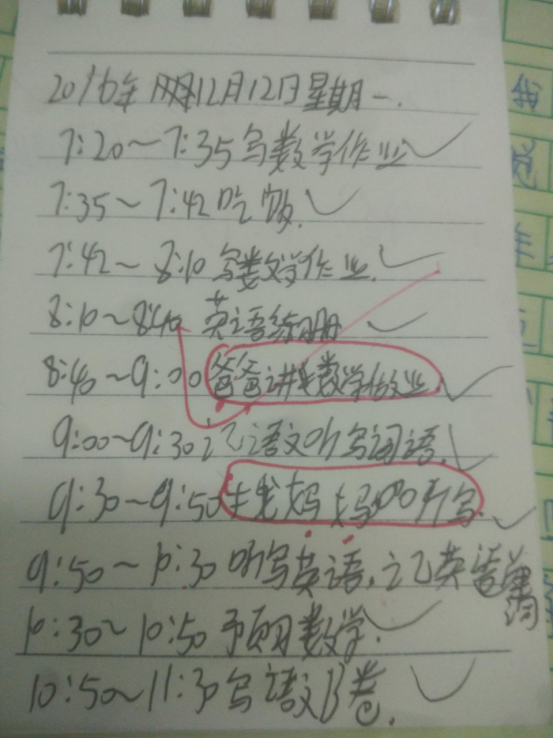 2016年12月12日星期一.
7:20～7:35写数学作业
7:35～7:42吃饭.
7:42～8:10写数学作业.
8:10～8:40英语练习册
8:40～9:00爸爸讲数学作业
9:00～9:30记语文听写词语.
9:30～9:50让我妈妈听写.
9:50～10:30听写英语,记英语单词
10:30～10:50预习数学.
10:50～11:30写语文B卷.